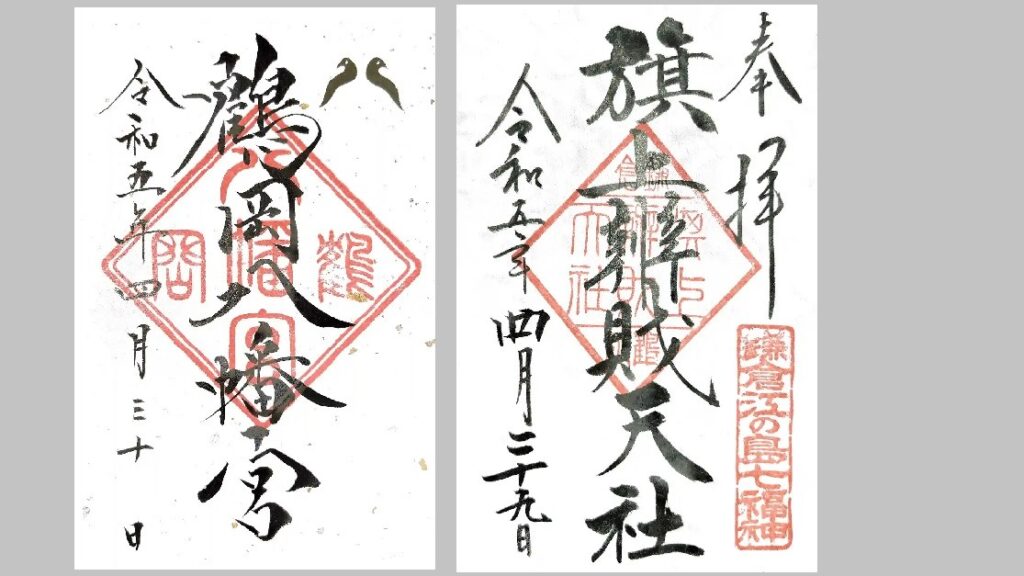 鶴岡八幡宮
令和五年四月三十日
奉拝
鎌倉江の島七福神
旗上辨財天社
令和五年四月二十九日